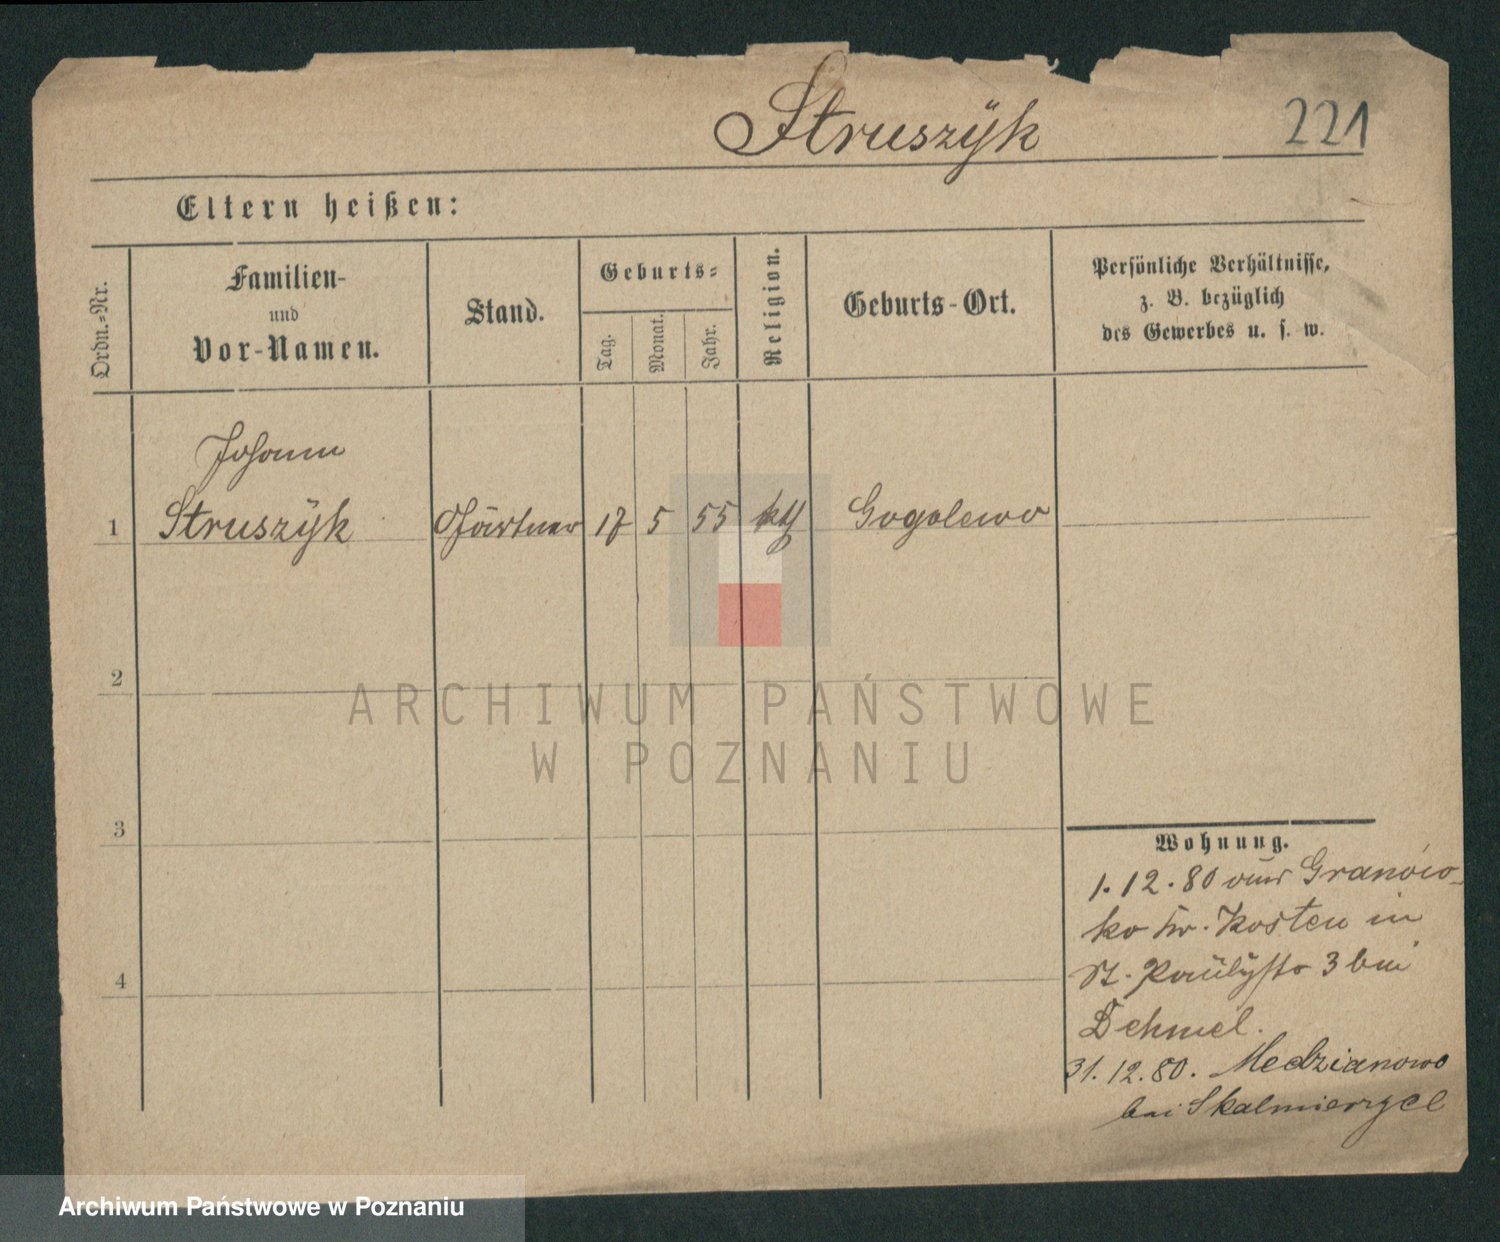 Struszÿk
221
Eltern heißen:
Ordn.-Nr.
Familien-
und
Vor-Namen.
Stand.
Geburts-
Tag.
Monat.
Jahr.
Religion.
Geburts-Ort.
Persönliche Verhältnisse,
z. B. bezüglich
des Gewerbes u. s. w.
Johann
1 Struszÿk Gärtner 17 5 55 kth Gogolewo
2
3
4
Wohnung.
1. 12. 80 aus Granów-
ko Kr. Kosten in
St. Paulystr 3 bei
Dehmel.
31. 12. 80. Medzianowo
bei Skalmierzyce
ARCHIWUM PAŃSTWOWE
W POZNANIU
Archiwum Państwowe w Poznaniu